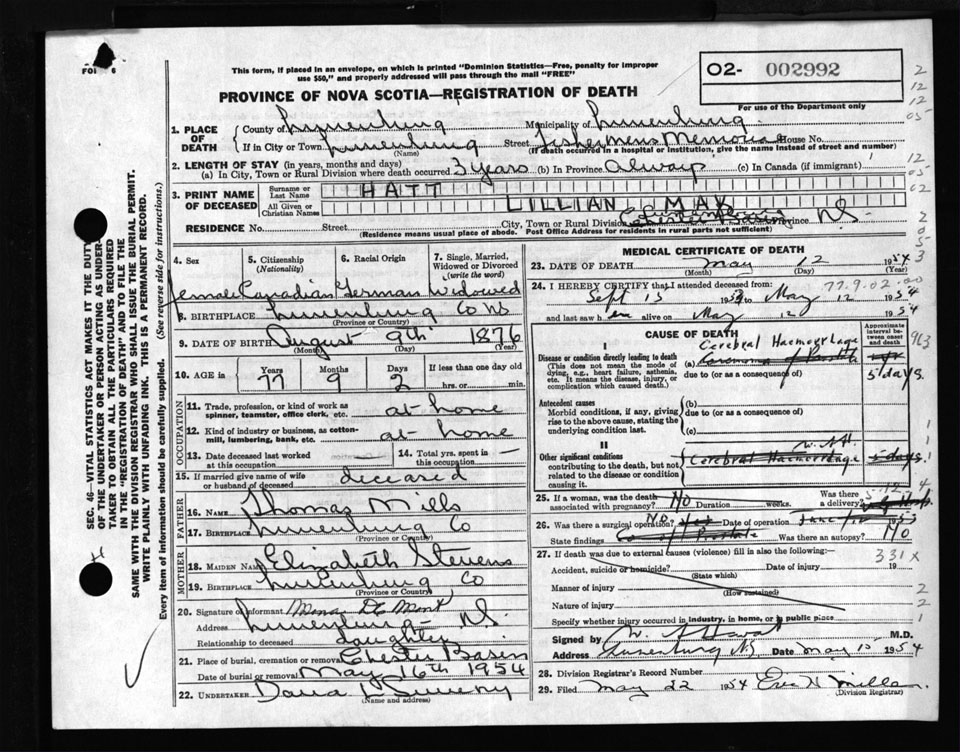 FOR 6
This form, if placed in an envelope, on which is printed "Dominion Statistics—Free, penalty for improper
use $50," and properly addressed will pass through the mail "FREE"
PROVINCE OF NOVA SCOTIA—REGISTRATION OF DEATH
02- 002992
For use of the Department only
1. PLACE OF DEATH County of Lunenburg Municipality of Lunenburg
If in City or Town Lunenburg Street Fishermens Memorial House No.
(Name) (If death occurred in a hospital or institution, give the name instead of street and number)
2. LENGTH OF STAY (in years, months and days)
(a) In City, Town or Rural Division where death occurred 3 years (b) In Province Always (c) In Canada (if immigrant)
3. PRINT NAME OF DECEASED Surname or Last Name HATT
All Given or Christian Names LILLIAN MAY
RESIDENCE No. Street City, Town or Rural Division Chester Basin Province NS
(Residence means usual place of abode. Post Office Address for residents in rural parts not sufficient)
4. Sex 5. Citizenship (Nationality) 6. Racial Origin 7. Single, Married, Widowed or Divorced (write the word)
female Canadian German Widowed
8. BIRTHPLACE Lunenburg Co NS
(Province or Country)
9. DATE OF BIRTH August 9th 1876
(Month) (Day) (Year)
10. AGE Years 77 Months 9 Days 3 If less than one day old
hrs. or min.
OCCUPATION
11. Trade, profession, or kind of work as spinner, teamster, office clerk, etc. at home
12. Kind of industry or business, as cotton-mill, lumbering, bank, etc. at home
13. Date deceased last worked at this occupation — 14. Total yrs. spent in this occupation —
15. If married give name of wife or husband of deceased deceased
FATHER
16. Name Thomas Mills
17. Birthplace Lunenburg Co
(Province or Country)
MOTHER
18. MAIDEN NAME Elizabeth Stevens
19. BIRTHPLACE Lunenburg Co
(Province or Country)
20. Signature of informant Mona
Address Lunenburg NS
Relationship to deceased daughter
21. Place of burial, cremation or removal Chester Basin
Date of burial or removal May 16th 1954
22. UNDERTAKER Dana Sweeny
(Name and address)
MEDICAL CERTIFICATE OF DEATH
23. DATE OF DEATH May 12 1954
(Month) (Day) (Year)
24. I HEREBY CERTIFY that I attended deceased from: 77.9.02.00
Sept 15 1953 to May 12 1954
and last saw her alive on May 12 1954
CAUSE OF DEATH
Approximate interval between onset and death
I
Disease or condition directly leading to death
(This does not mean the mode of dying, e.g., heart failure, asthenia, etc. It means the disease, injury, or complication which caused death.)
Cerebral Haemorrhage
(a) Carcinoma of Prostate
due to (or as a consequence of) 5 days.
Antecedent causes
Morbid conditions, if any, giving rise to the above cause, stating the underlying condition last.
(b)
due to (or as a consequence of)
(c)
II
Other significant conditions
contributing to the death, but not related to the disease or condition causing it.
Cerebral Haemorrhage 5 days.
25. If a woman, was the death associated with pregnancy? No Duration weeks. Was there a delivery?
26. Was there a surgical operation? No Yes Date of operation 1953
State findings Ca of Prostate Was there an autopsy? No
27. If death was due to external causes (violence) fill in also the following:— 331x
Accident, suicide or homicide? Date 19
(State which)
Manner of injury
(How sustained)
Nature of injury
Specify whether injury occurred in industry, in home, or in public place
Signed by M.D.
Address Lunenburg N.S. Date May 15 1954
28. Division Registrar's Record Number
29. Filed May 22 1954
(Division Registrar)
SEC. 46—VITAL STATISTICS ACT MAKES IT THE DUTY
OF THE UNDERTAKER OR PERSON ACTING AS UNDERTAKER TO OBTAIN ALL THE PARTICULARS REQUIRED
IN THE "REGISTRATION OF DEATH" AND TO FILE THE
SAME WITH THE DIVISION REGISTRAR WHO SHALL ISSUE THE BURIAL PERMIT.
WRITE PLAINLY WITH UNFADING INK. THIS IS A PERMANENT RECORD.
Every item of information should be carefully supplied. (See reverse side for instructions.)
2
12
12
05
12
05
02
2
0
5
3
963
1
1
1
4
2
2
1